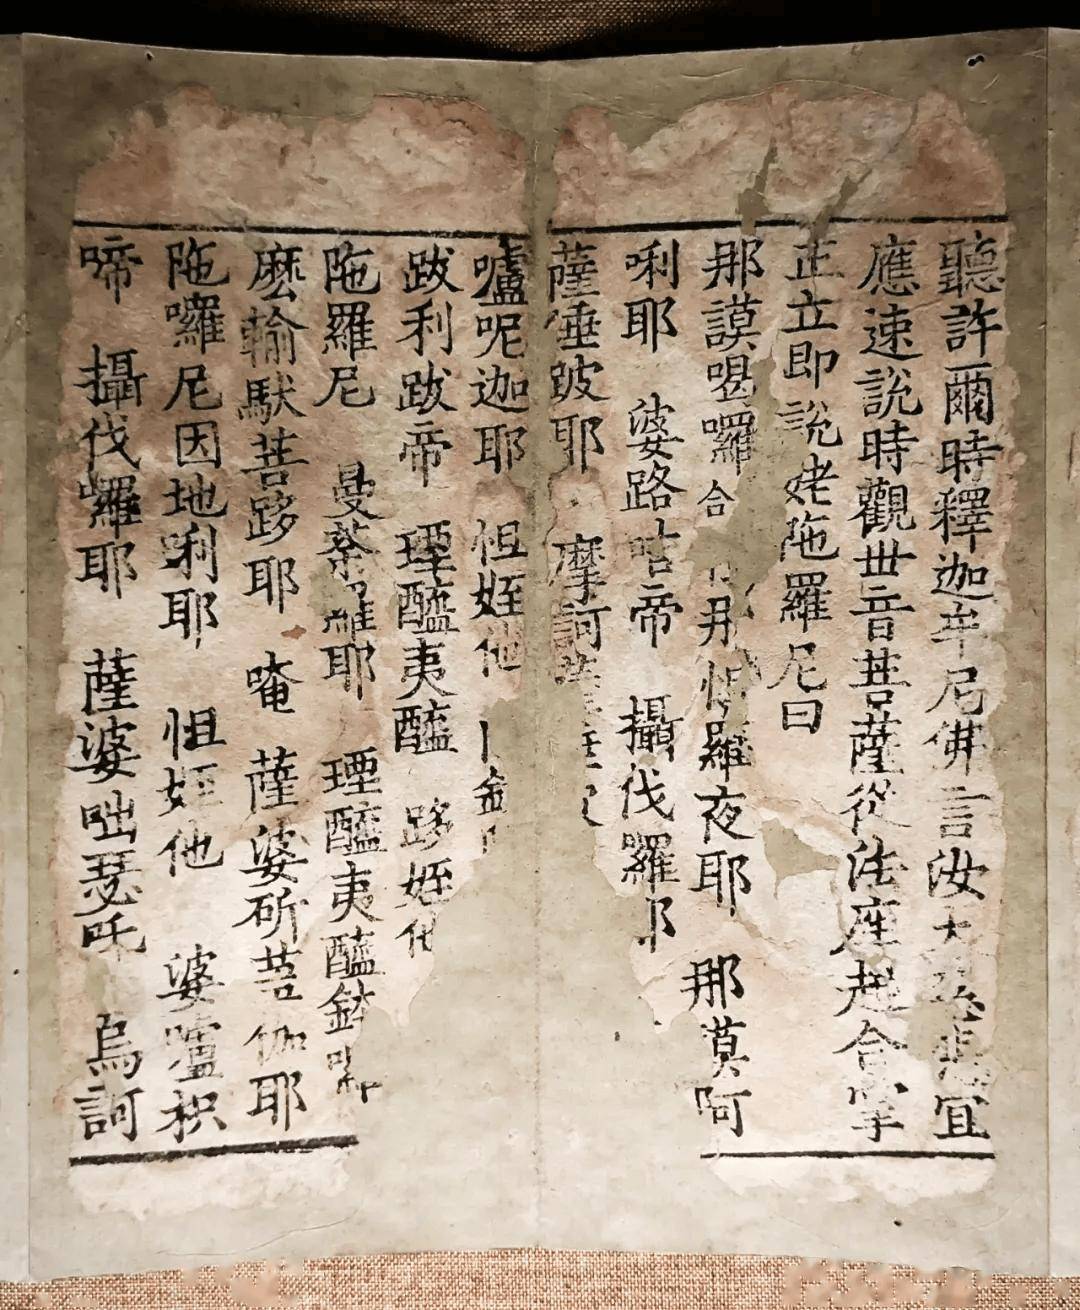 聽許爾時釋迦牟尼佛言汝大慈悲宜
應速說時觀世音菩薩從法座起合掌
正立即說姥陁羅尼曰
那謨喝囉合 那怛羅夜耶 那莫阿
唎耶 婆路咭帝 攝伐羅耶
薩埵跛耶 摩訶薩
嚧呢迦耶 怛姪他
跋利跋帝 堙醯夷醯 跢姪他
陁羅尼 曼茶囉耶 堙醯夷醯鉢囉
麽輸馱菩跢耶 唵 薩婆斫蒭伽耶
陁囉尼因地唎耶 怛姪他 婆嚧枳
啼 攝伐囉耶 薩婆咄瑟吒 烏訶